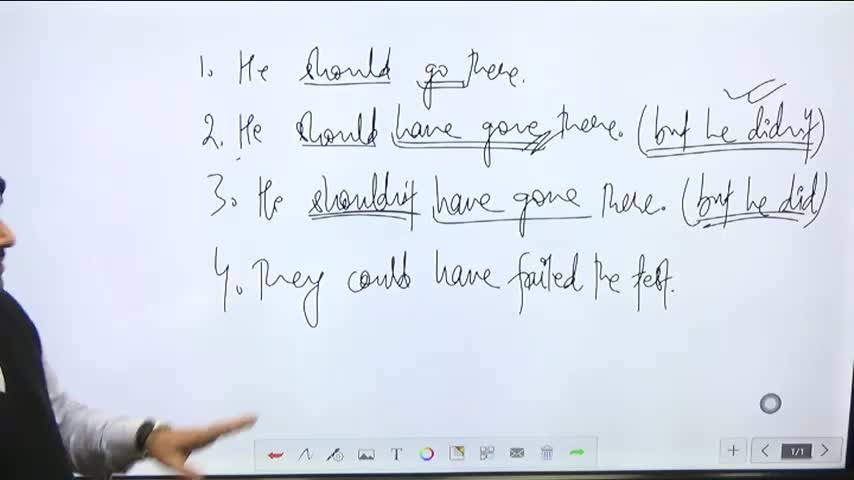 1. He should go there.
2. He should have gone there. (but he didn't)
3. He shouldn't have gone there. (but he did)
4. They could have failed the test.
T
1/1